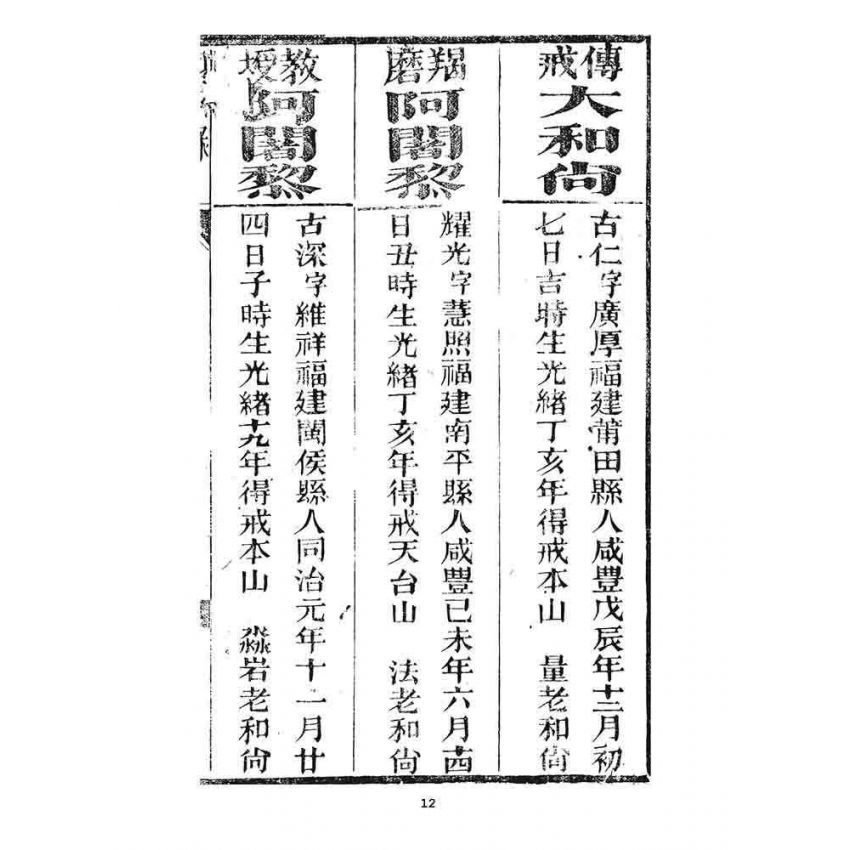 傳戒
大和尚
古仁字廣厚福建莆田縣人咸豐戊辰年十二月初
七日吉時生光緒丁亥年得戒本山　量老和尚
羯磨
阿闍黎
耀光字慧照福建南平縣人咸豐己未年六月
日丑時生光緒丁亥年得戒天台山　法老和尚
教授
阿闍黎
古深字維祥福建閩侯縣人同治元年十一月廿
四日子時生光緒十九年得戒本山　淼岩老和尚
12